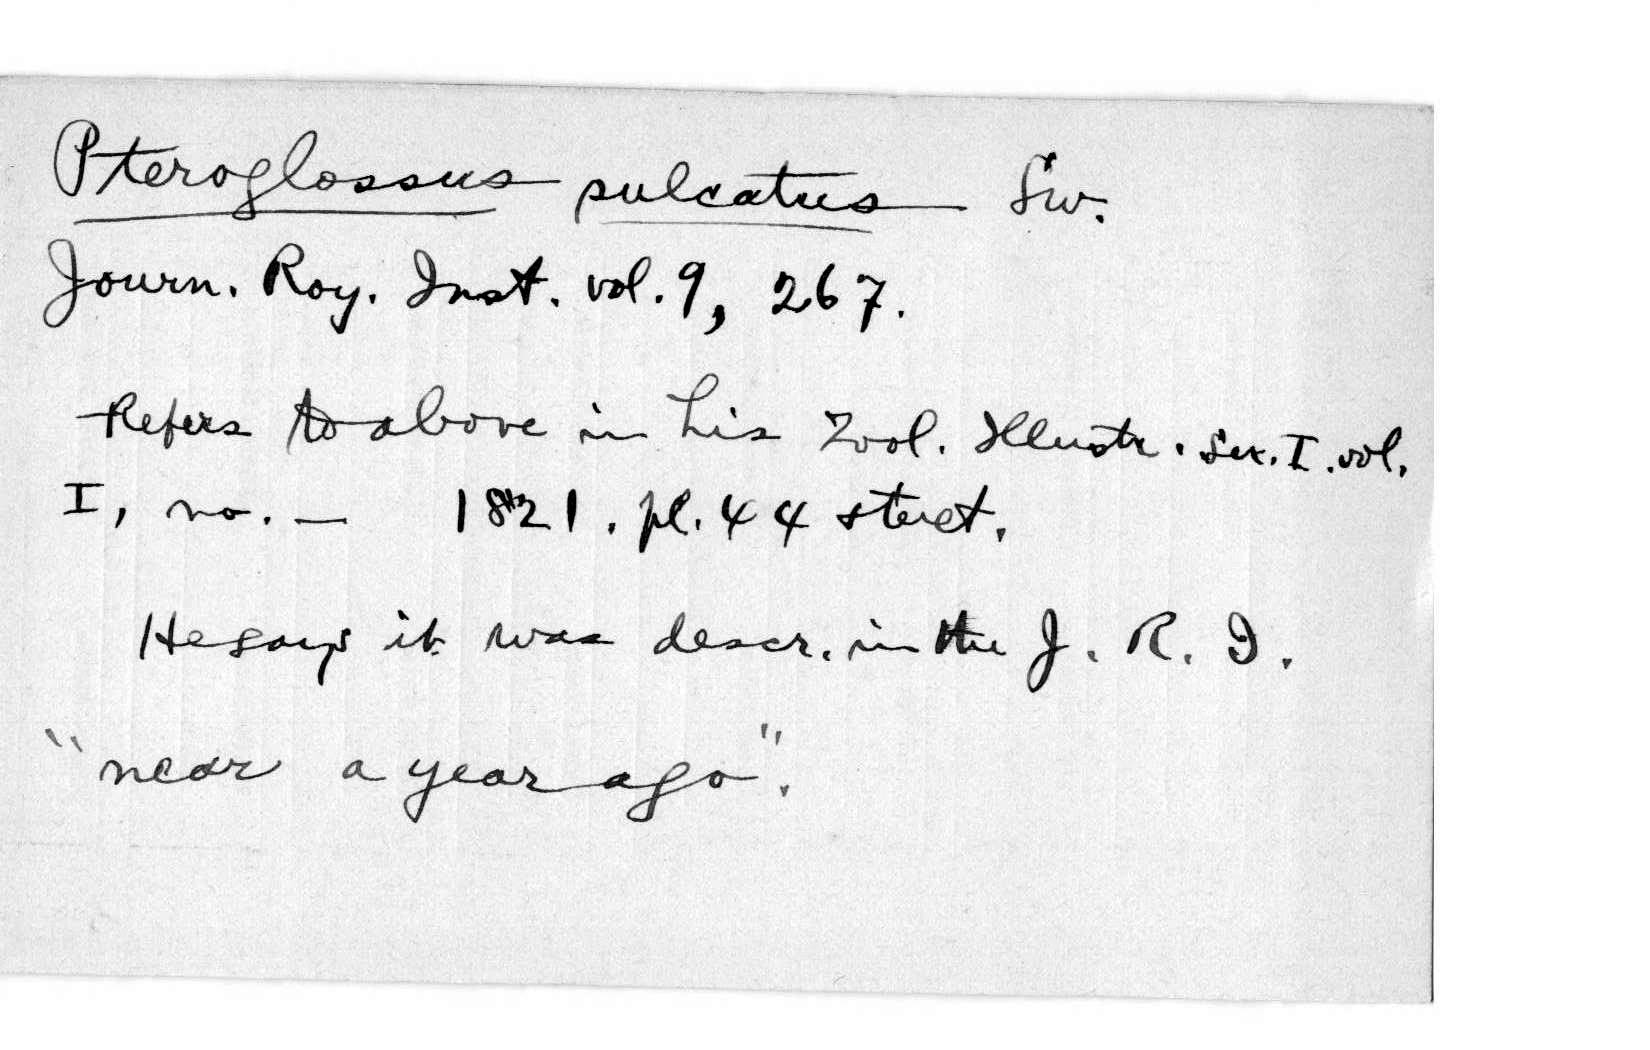 Pteroglossus sulcatus Sw.
Journ. Roy. Inst. vol. 9, 267.
Refers to above in his Zool. Illustr. Ser. I. vol.
I, no. — 1821. pl. 44 & text.
He says it was descr. in the J. R. I.
"near a year ago".